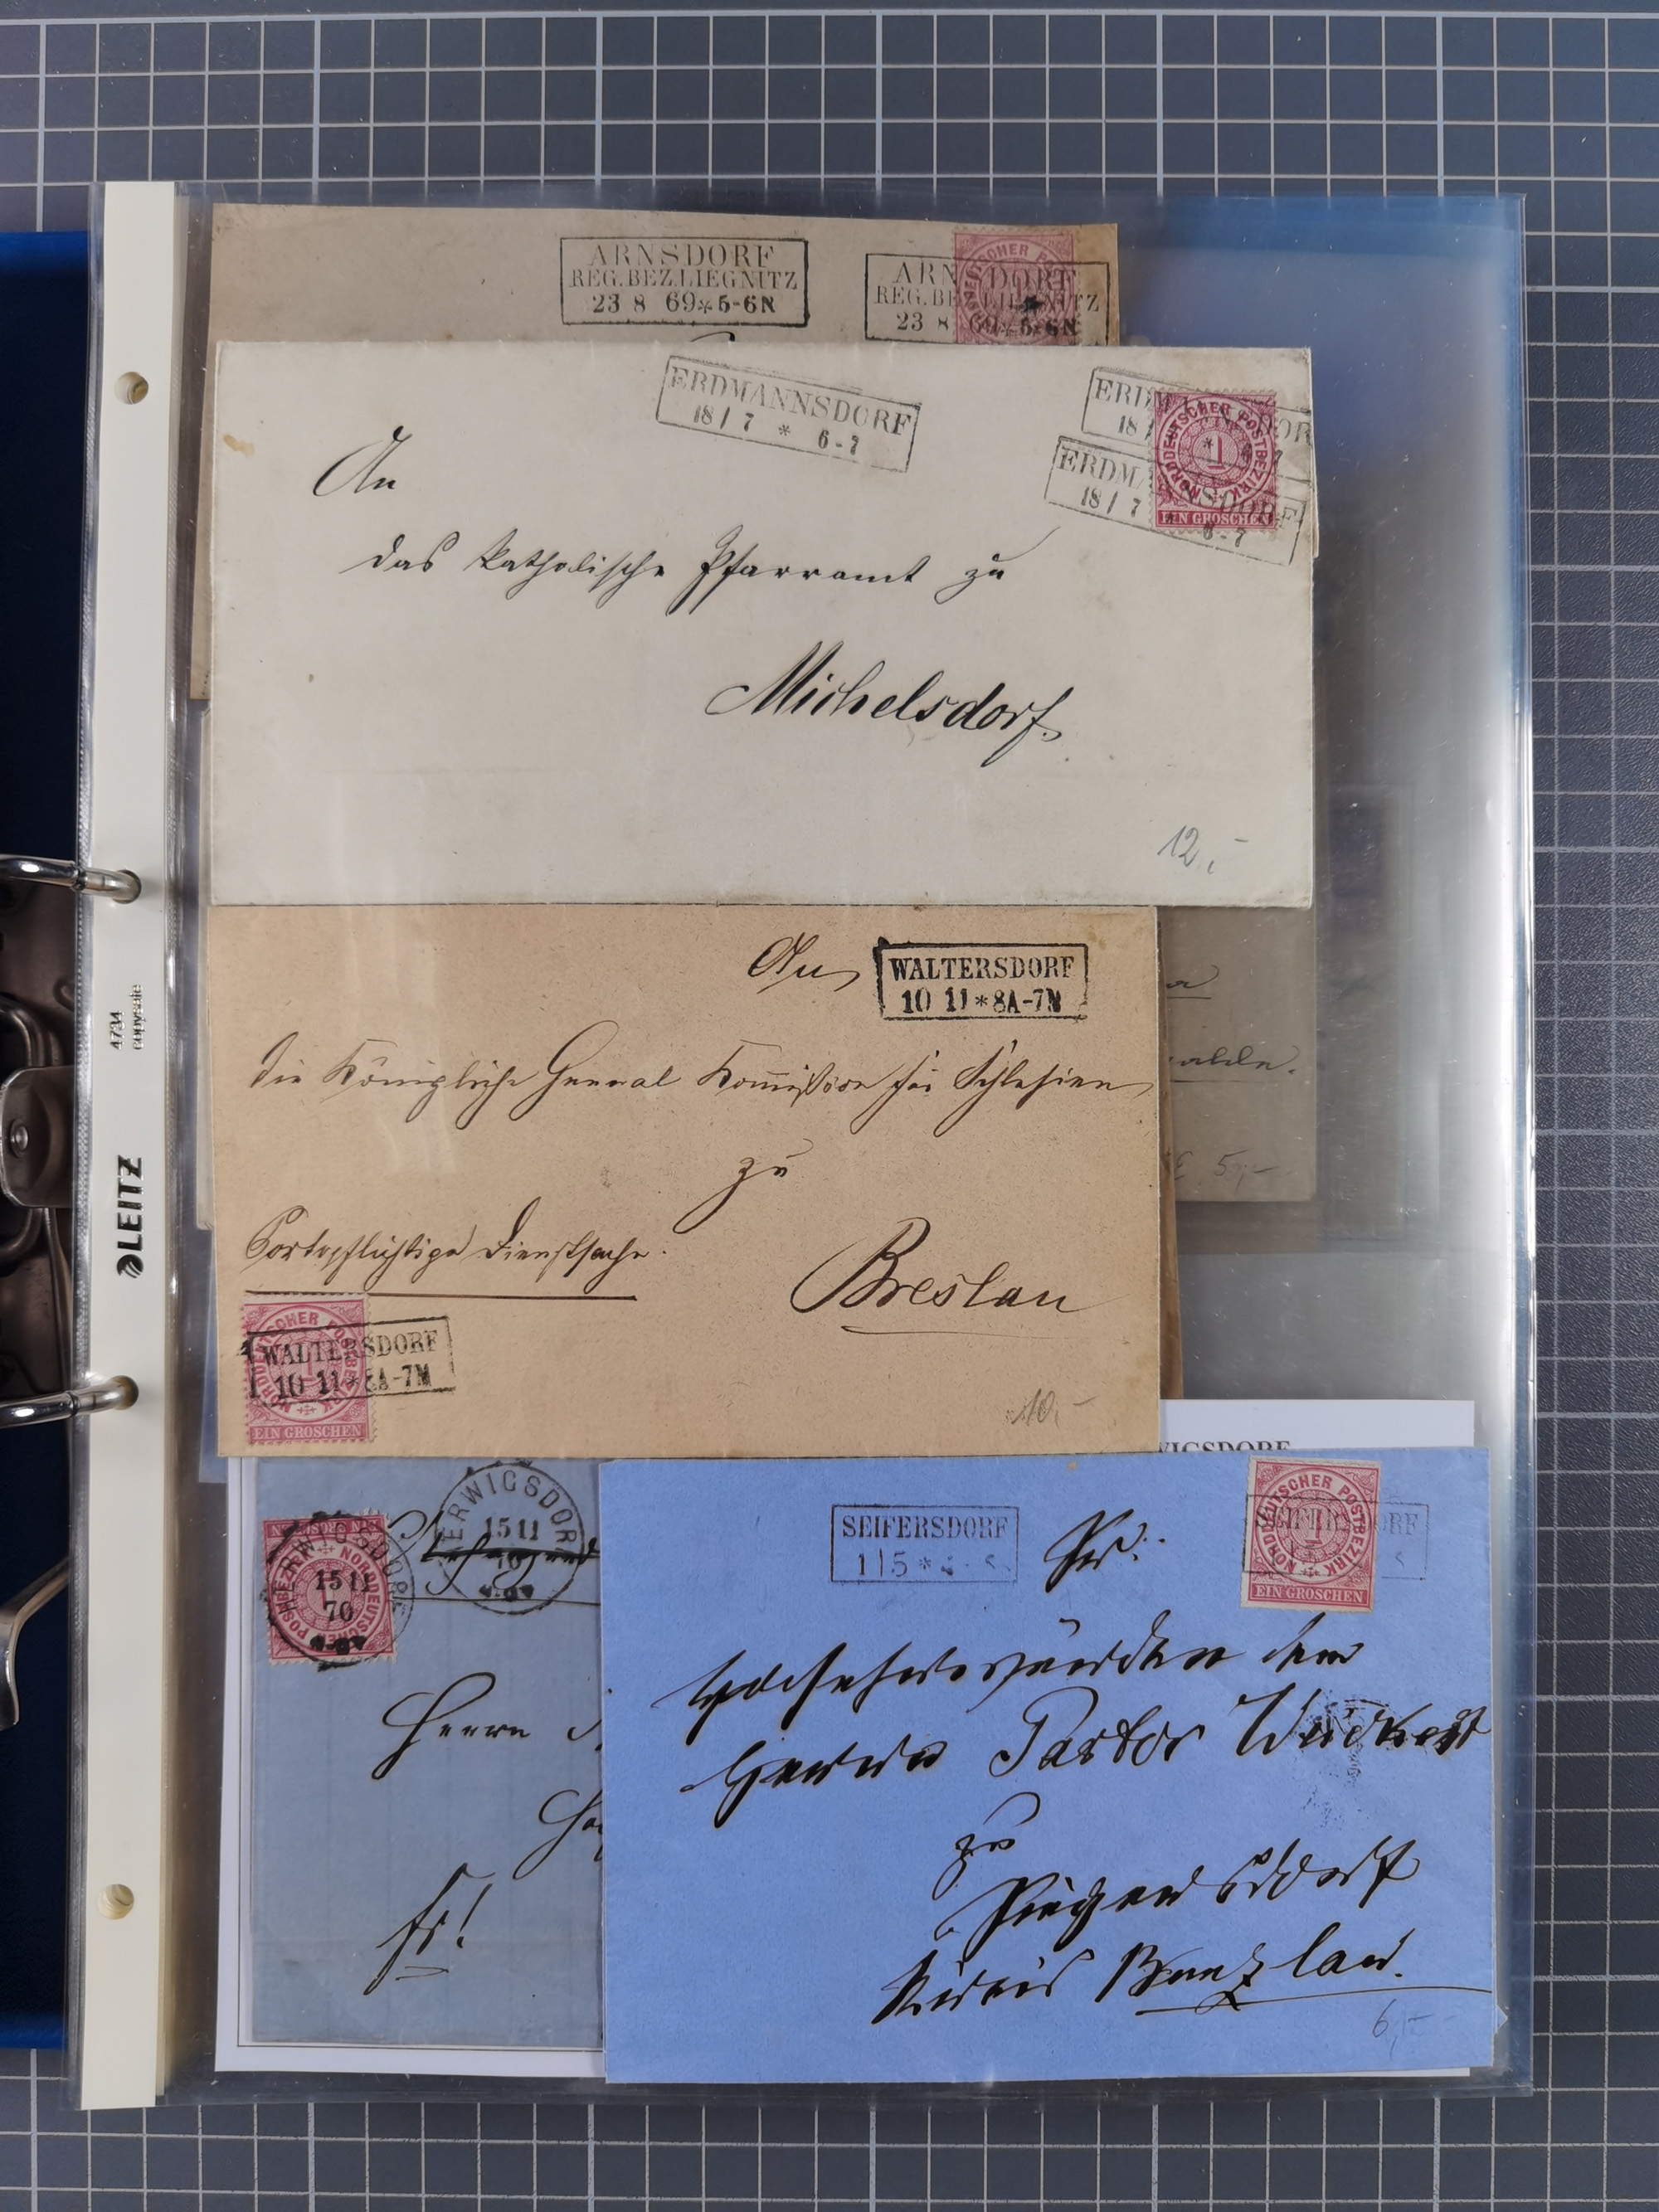 ARNSDORF
REG.BEZ.LIEGNITZ
23 8 69*5-6N
ARNSDORF
REG.BEZ.LIEGNITZ
23 8 69*5-6N
ERDMANNSDORF
18/7 * 6-7
ERDMANNSDORF
18/7
NORDDEUTSCHER POSTBEZIRK
1
EIN GROSCHEN
ERDMANNSDORF
18/7 * 6-7
An
das katholische Pfarramt zu
Michelsdorf.
12,-
An
WALTERSDORF
10 11*8A-7N
die Königliche General Kommißion für Schlesien
zu
Portopflichtige Dienstsache.
Breslau
WALTERSDORF
10 11*8A-7N
NORDDEUTSCHER POSTBEZIRK
EIN GROSCHEN
10,-
5,-
4734
copysafe
LEITZ
WIGSDORF
HERWIGSDORF
15 11
70
HERWIGSDORF
15 11
70
EIN GROSCHEN
NORDDEUTSCHER POSTBEZIRK
Herrn
fr!
SEIFERSDORF
1/5 *
Sr.
SEIFERSDORF
NORDDEUTSCHER POSTBEZIRK
1
EIN GROSCHEN
Hochehrwürden dem
Herrn Pastor
zu
Siegersdorf
Kreis Bunzlau.
6,-